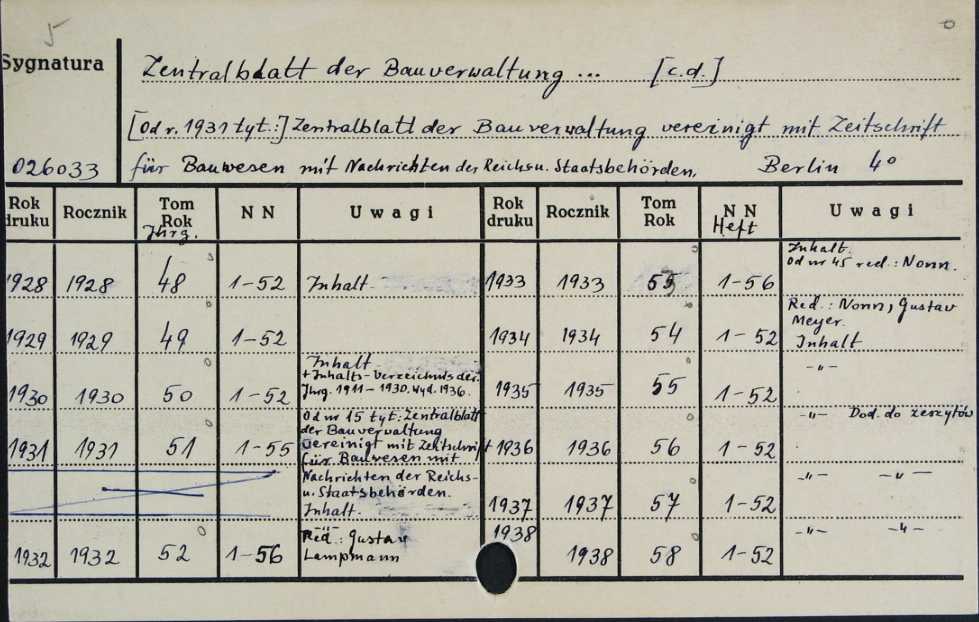 5
Sygnatura
Zentralblatt der Bauverwaltung ... [c.d.]
[Od r. 1931 tyt.:] Zentralblatt der Bauverwaltung vereinigt mit Zeitschrift
026033 für Bauwesen mit Nachrichten der Reichs u. Staatsbehörden. Berlin 4°
Rok druku Rocznik Tom Rok Jhrg. NN Uwagi Rok druku Rocznik Tom Rok NN Heft Uwagi
1928 1928 48 1-52 Inhalt
1929 1929 49 1-52
1930 1930 50 1-52 Inhalt
+ Inhalts-Verzeichnis der
Jhrg. 1911-1930. Wyd. 1936.
1931 1931 51 1-55 Od nr 15 tyt: Zentralblatt
der Bauverwaltung
vereinigt mit Zeitschrift
für Bauwesen mit
Nachrichten der Reichs-
u. Staatsbehörden.
Inhalt.
1932 1932 52 1-56 -"-
Red.: Gustav
Lampmann
1933 1933 53 1-56 Inhalt.
Od nr 45 red.: Nonn.
1934 1934 54 1-52 Red.: Nonn, Gustav
Meyer.
Inhalt
1935 1935 55 1-52 -"-
1936 1936 56 1-52 -"- Dod. do zeszytów
1937 1937 57 1-52 -"- -"-
1938 1938 58 1-52 -"- -"-